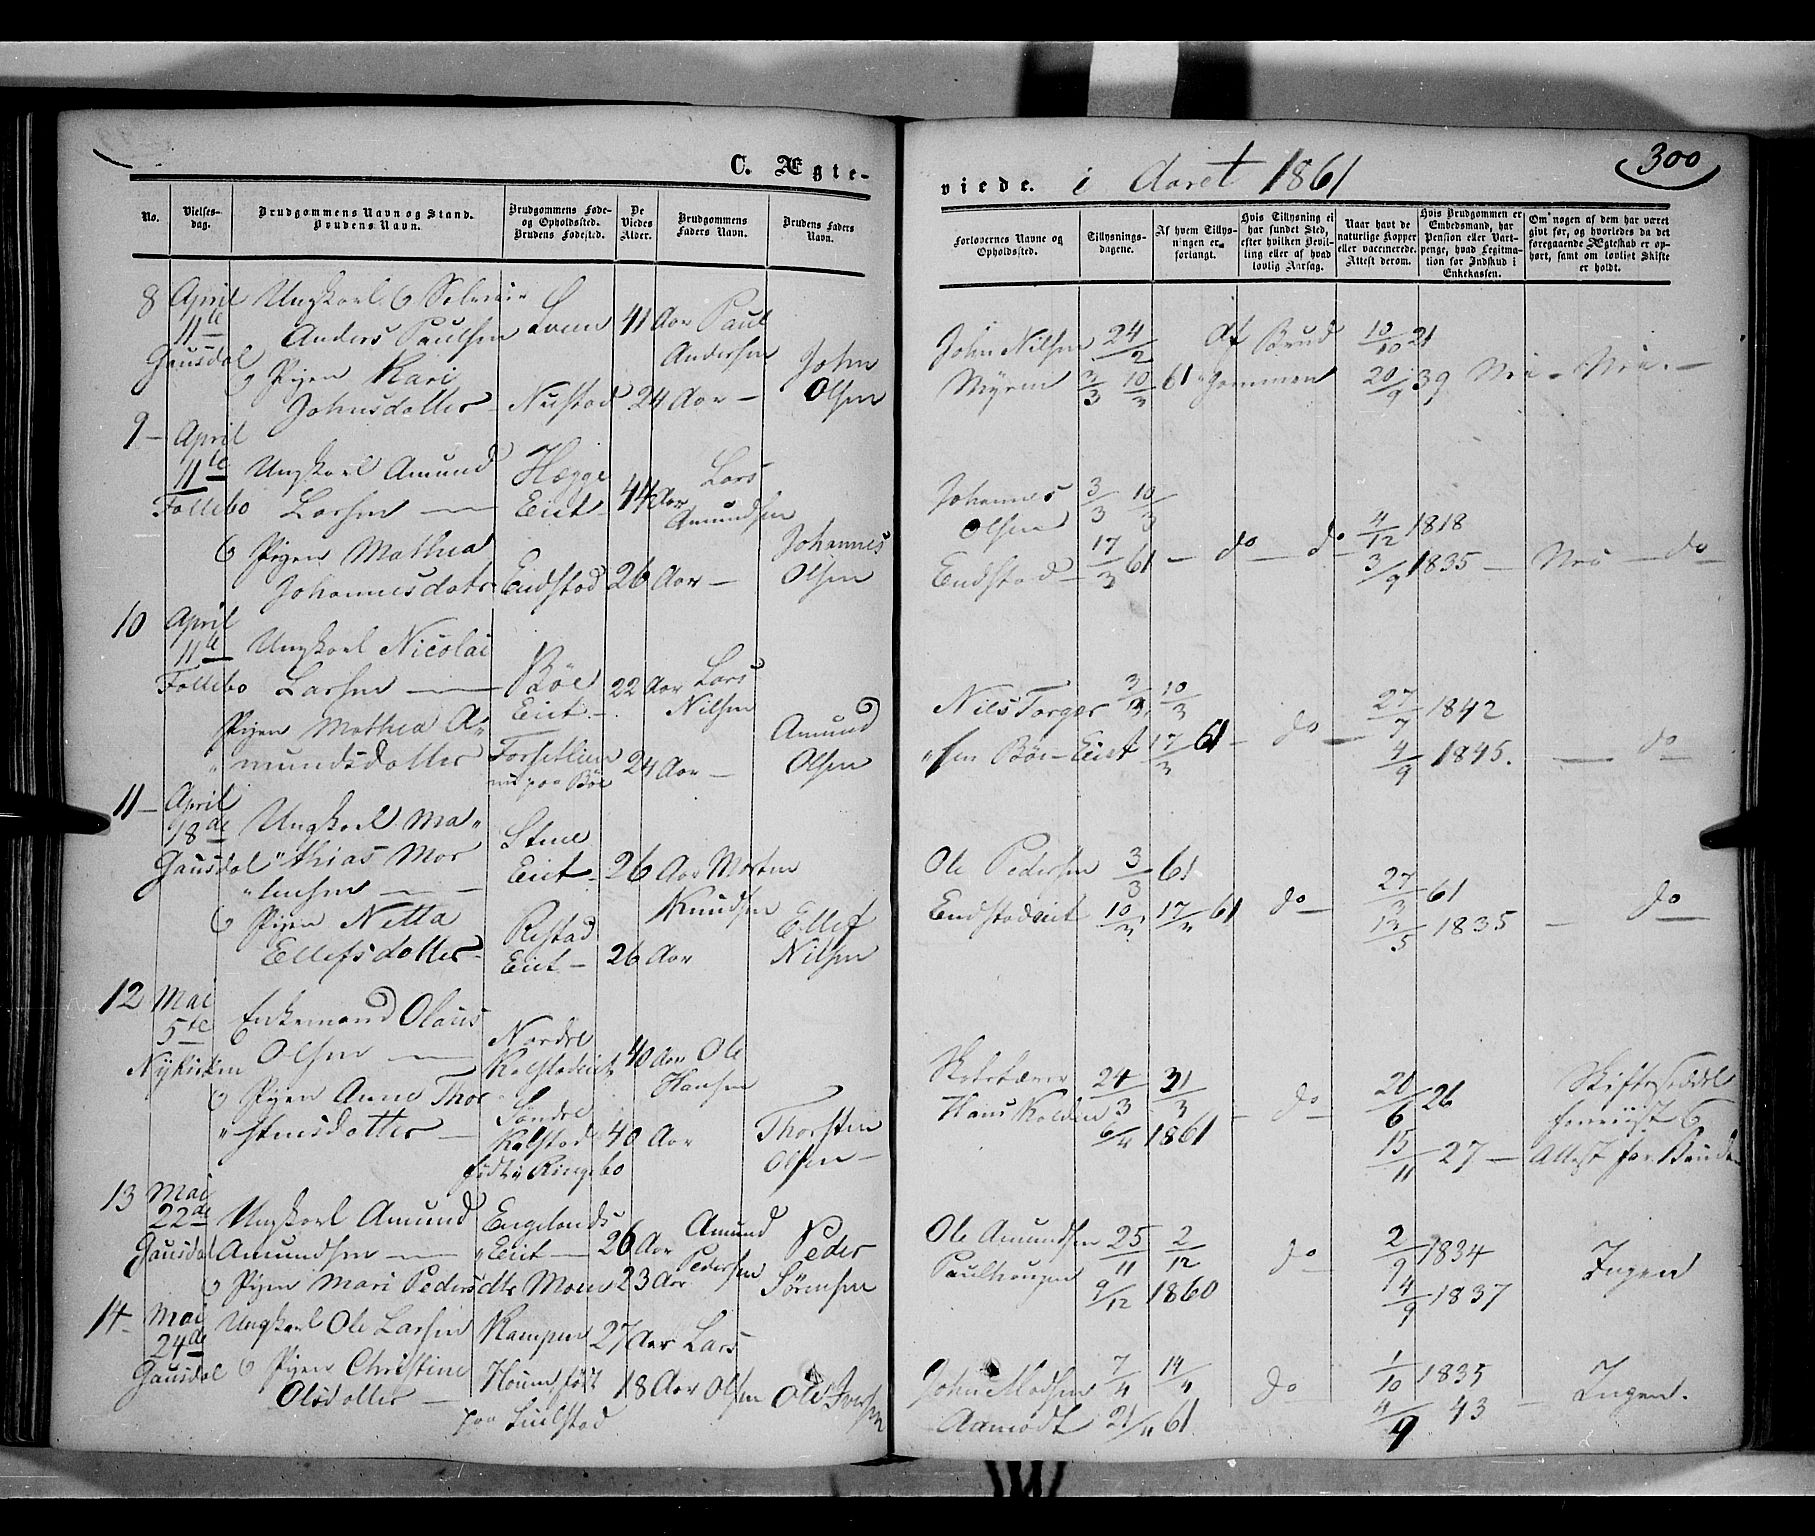 C. Ægte-
viede. i Aaret 1861
300
No.
Vielses-
dag.
Brudgommens Navn og Stand.
Brudens Navn.
Brudgommens Føde-
og Opholdssted.
Brudens Fødested.
De
Viedes
Alder.
Brudgommens
Faders Navn.
Brudens Faders
Navn.
Forlovernes Navne og
Opholdssted.
Tillysnings-
dagene.
Af hvem Tillys-
ningen er
forlangt.
Hvis Tillysning ei
har fundet Sted,
efter hvilken Bevil-
ling eller af hvad
lovlig Aarsag.
Naar havt de
naturlige Kopper
eller vaccinerede.
Attest derom.
Hvis Brudgommen er
Embedsmand, har
Pension eller Vart-
penge, hvad Legitima-
tion for Indskud i
Enkekassen.
Om nogen af dem har været
givt før, og hvorledes da det
foregaaende Ægteskab er op-
hørt, samt om lovligt Skifte
er holdt.
8 April Ungkarl
11te Anders Paulsen 41 Aar Paul
Gausdal Andersen
Pigen Kari John
Johnsdatter Nustad 24 Aar Olsen
John Nilsen 24/2 Af Brud 10/10 21
Myren 3/3 10/3 61 gommen 20/9 39 Nei - Nei.
9 April
11te Ungkarl Amund Hegge Lars
Follebo Larsen Eiet 44 Aar Amundsen
Pigen Mathea Johannes
Johannesdatr Endstad 26 Aar Olsen
Johannes 3/3 10/3
Olsen 17/3 61 do do 4/12 1818
Endstad 3/9 1835 Nei do
10 April
11te Ungkarl Nicolai
Follebo Larsen Bøe 22 Aar Lars
Eiet Nilsen
Pigen Mathea A- Amund
mundsdatter Forsetlien 24 Aar Olsen
nu paa Bøe
Nils Torger 3/3 10/3 27/7 1842
sen Bøe Eiet 17/3 61 do 4/9 1845. do
11 April
18de Ungkarl Ma- Stene
Gausdal thias Mor Eiet 26 Aar Morten
tensen Knudsen
Pigen Netta Restad Ellef
Ellefsdatter Eiet 26 Aar Nilsen
Ole Pedersen 3/3 61 27/3 61
Endstadeiet 10/3 17/3 61 do 12/5 1835 do
12 Mai
5te Enkemand Olaus Nordre
Nykirken Olsen Kalstadeiet 40 Aar Ole
Hansen
Pigen Anne Thor Søndre
stensdatter Kalstad 40 Aar Thorsten
født i Ringebo Olsen
24/3 31/3 20/6 26 Skifteseddel
Hans Kolden 6/4 1861 do foreviist
15/11 27 Attest for Bruden
13 Mai
22de Ungkarl Amund Engelands Amund
Gausdal Amundsen Eiet 26 Aar Pedersen Peder
Pigen Mari Pedersdtr Moen 23 Aar Sørensen
Ole Amundsen 25/11 2/12 2/9 1834
Paulhaugen 9/12 1860 do 14/9 1837 Ingen
14 Mai Ungkarl Ole Larsen Kampen 27 Aar Lars
24de
Gausdal Pigen Christine født 18 Aar Olsen Ole Iversen
Olsdatter paa Luilstad
John Madsen 7/4 14/4 1/10 1835
Aamodt 21/4 61 do 4/9 43 Ingen.